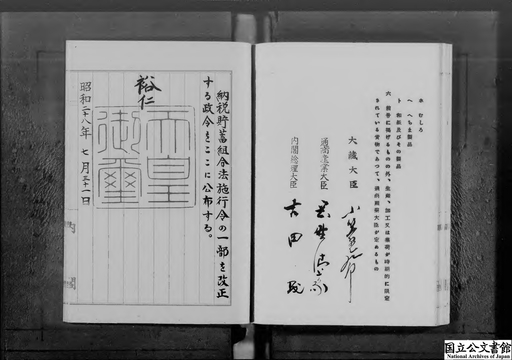 ホ むしろ
ヘ へちま製品
ト 和紙及びその製品
六 前各号に掲げるものの外、生産、加工又は集荷が時期的に限定
されている貨物であつて、通商産業大臣が定めるもの
大蔵大臣 小笠原三九郎
通商産業大臣 岡野清豪
内閣総理大臣 吉田茂
納税貯蓄組合法施行令の一部を改正
する政令をここに公布する。
裕仁
天皇
御璽
昭和二十八年 七月三十一日
国立公文書館
National Archives of Japan